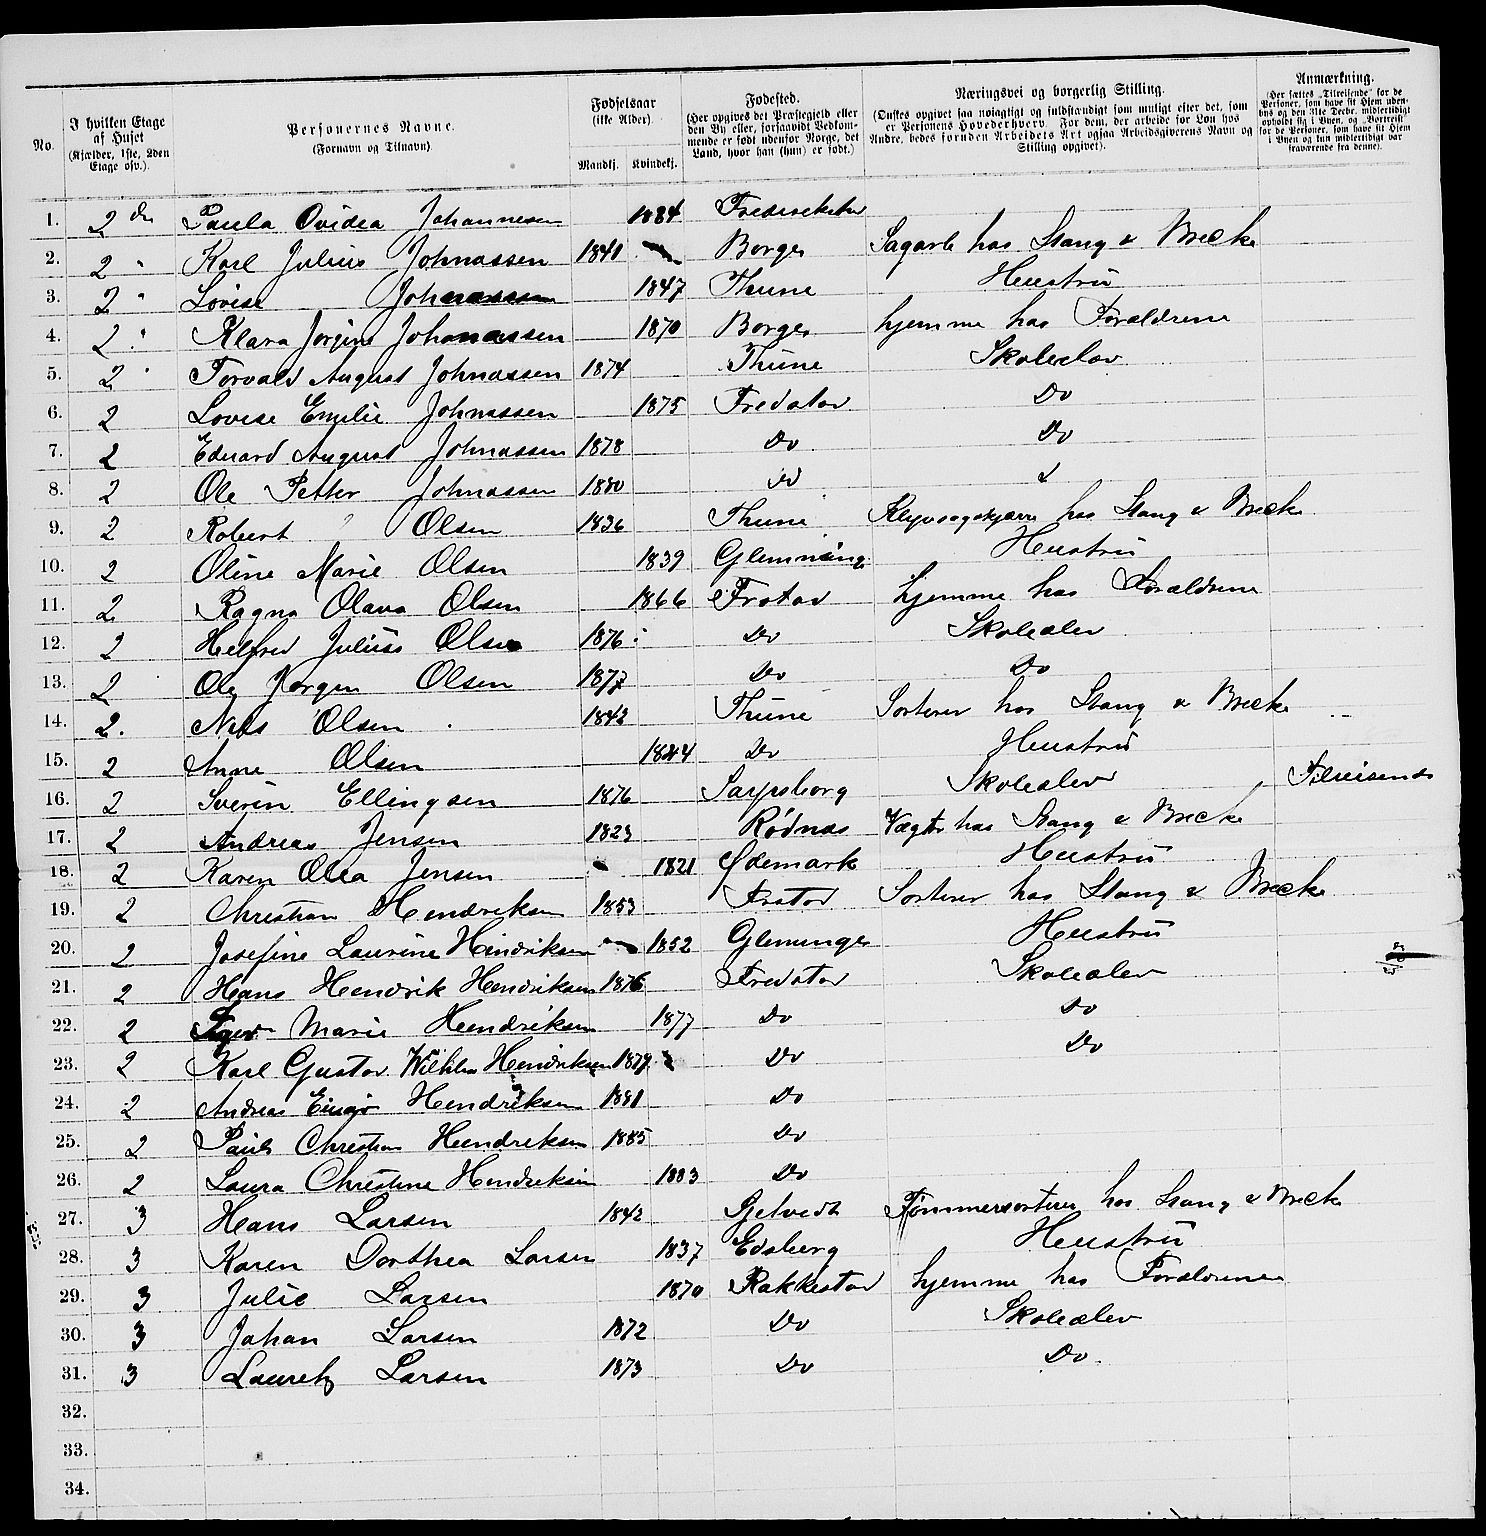 No. | I hvilken Etage af Huset (Kjælder, 1ste, 2den Etage osv.). | Personernes Navne. (Fornavn og Tilnavn) | Fødselsaar (ikke Alder). Mandkj. | Kvindekj. | Fødested. (Her opgives det Præstegjeld eller den By eller, forsaavidt Vedkommende er født udenfor Norge, det Land, hvor han (hun) er født.) | Næringsvei og borgerlig Stilling. (Ønskes opgivet saa nøiagtigt og fuldstændigt som muligt efter det, som er Personens Hovederhverv. For dem, der arbeide for Løn hos Andre, bedes foruden Arbeidets Art ogsaa Arbeidsgiverens Navn og Stilling opgivet). | Anmærkning. (Her sættes „Tilreisende“ for de Personer, som have sit Hjem udenbys og den 31te Decbr. midlertidigt opholdt sig i Byen, og „Bortreist“ for de Personer, som have sit Hjem i Byen og kun midlertidigt var fraværende fra denne).
1. 2den Paula Ovidea Johannesen 1884
2. 2 " Karl Julius Johnassen 1841 Borge Sagarb hos Stang & Brecke
3. 2 " Lovise Johnassen 1847 Thune Hustru
4. 2 " Klara Johnassen 1870 Borge hjemme hos Forældrene
5. 2 " Torvald August Johnassen 1874 Thune Skoleelev
6. 2 Lovise Emilie Johnassen 1875 Fredstad Do
7. 2 Edvard August Johnassen 1878 Do Do
8. 2 Ole Petter Johnassen 1880 Do
9. 2 Robert Olsen 1836 Thune hos Stang & Brecke
10. 2 Oline Marie Olsen 1839 Glemminge Hustru
11. 2 Ragna Olava Olsen 1866 Frstad hjemme hos Forældrene
12. 2 Helfred Julius Olsen 1876 Do Skoleelev
13. 2 Ole Jørgen Olsen 1877 Do Do
14. 2. Nils Olsen 1842 Thune Sorterer hos Stang & Brecke
15. 2 Anne Olsen 1844 Do Hustru
16. 2 Sverin Ellingsen 1876 Sarpsborg Skoleelev Tilreisende
17. 2 Andreas Jensen 1823 Rødnæs Vægter hos Stang & Brecke
18. 2 Karen Olea Jensen 1821 Ødemark Hustru
19. 2 Christian Hendriksen 1853 Frstad Sorterer hos Stang & Brecke
20. 2 Josefine Laurine Hendriksen 1852 Glemminge Hustru
21. 2 Hans Hendrik Hendriksen 1876 Fredstad Skoleelev
22. 2 Marie Hendriksen 1877 Do Do
23. 2 Karl Gustav Wilhelm Hendriksen 1879 Do Do
24. 2 Andreas Hendriksen 1881 Do
25. 2 Paul Christian Hendriksen 1885 Do
26. 2 Laura Christine Hendriksen 1883 Do
27. 3 Hans Larsen 1842 Tømmersorterer hos Stang & Brecke
28. 3 Karen Dorthea Larsen 1837 Edsberg Hustru
29. 3 Julie Larsen 1870 Rakkestad hjemme hos Forældrene
30. 3 Johan Larsen 1872 Do Skoleelev
31. 3 Lauretz Larsen 1873 Do Do.
32.
33.
34.